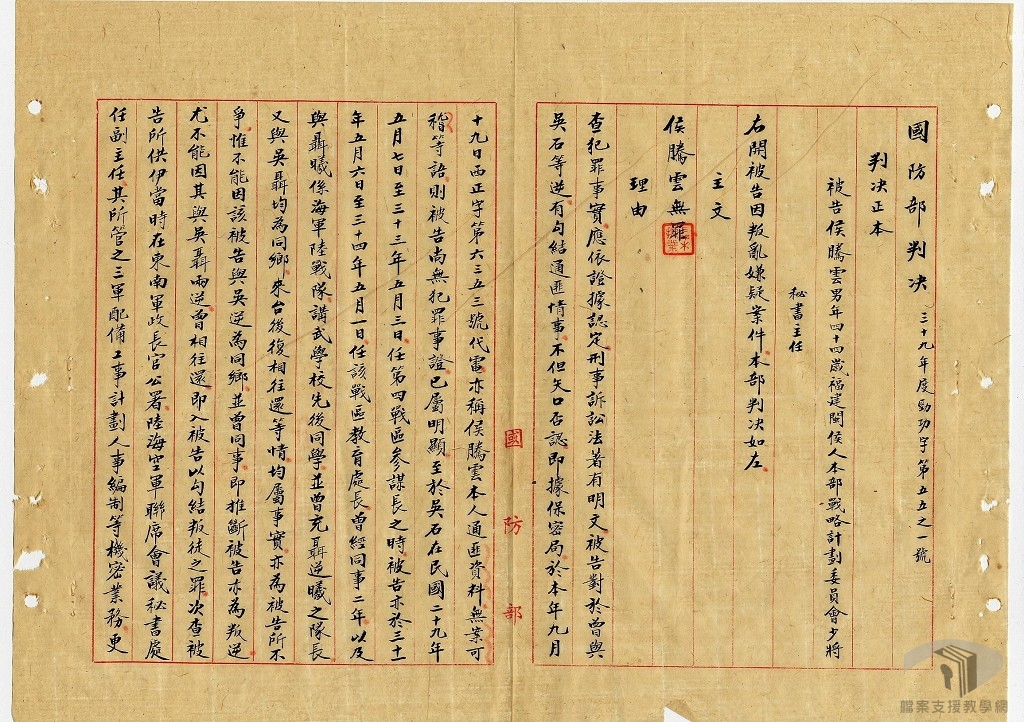 國防部判決 三十九年度勁功字第五五之一號
判決正本
被告侯騰雲男年四十四歲福建閩侯人本部戰略計劃委員會少將
秘書主任
右開被告因叛亂嫌疑案件本部判決如左
主文
侯騰雲無罪
理由
查犯罪事實應依證據認定刑事訴訟法著有明文被告對於曾與
吳石等逆有勾結通匪情事不但矢口否認即據保密局於本年九月
國防部
十九日西正字第六三五三號代電亦稱侯騰雲本人通匪資料無案可
稽等語則被告尚無犯罪事證已屬明顯至於吳石在民國二十九年
五月七日至三十三年五月三日任第四戰區參謀長之時被告亦於三十一
年五月六日至三十四年五月一日任該戰區教育處長曾經同事二年以及
與聶曦係海軍陸戰隊講武學校先後同學並曾充聶逆曦之隊長
又與吳聶均為同鄉來台後復相往還等情均屬事實亦為被告所不
爭惟不能因該被告與吳逆為同鄉並曾同事即推斷被告亦為叛逆
尤不能因其與吳聶兩逆曾相往還即入被告以勾結叛徒之罪次查被
告所供伊當時在東南軍政長官公署陸海空軍聯席會議秘書處
任副主任其所管之三軍配備工事計劃人事編制等機密業務更
檔案支援教學網